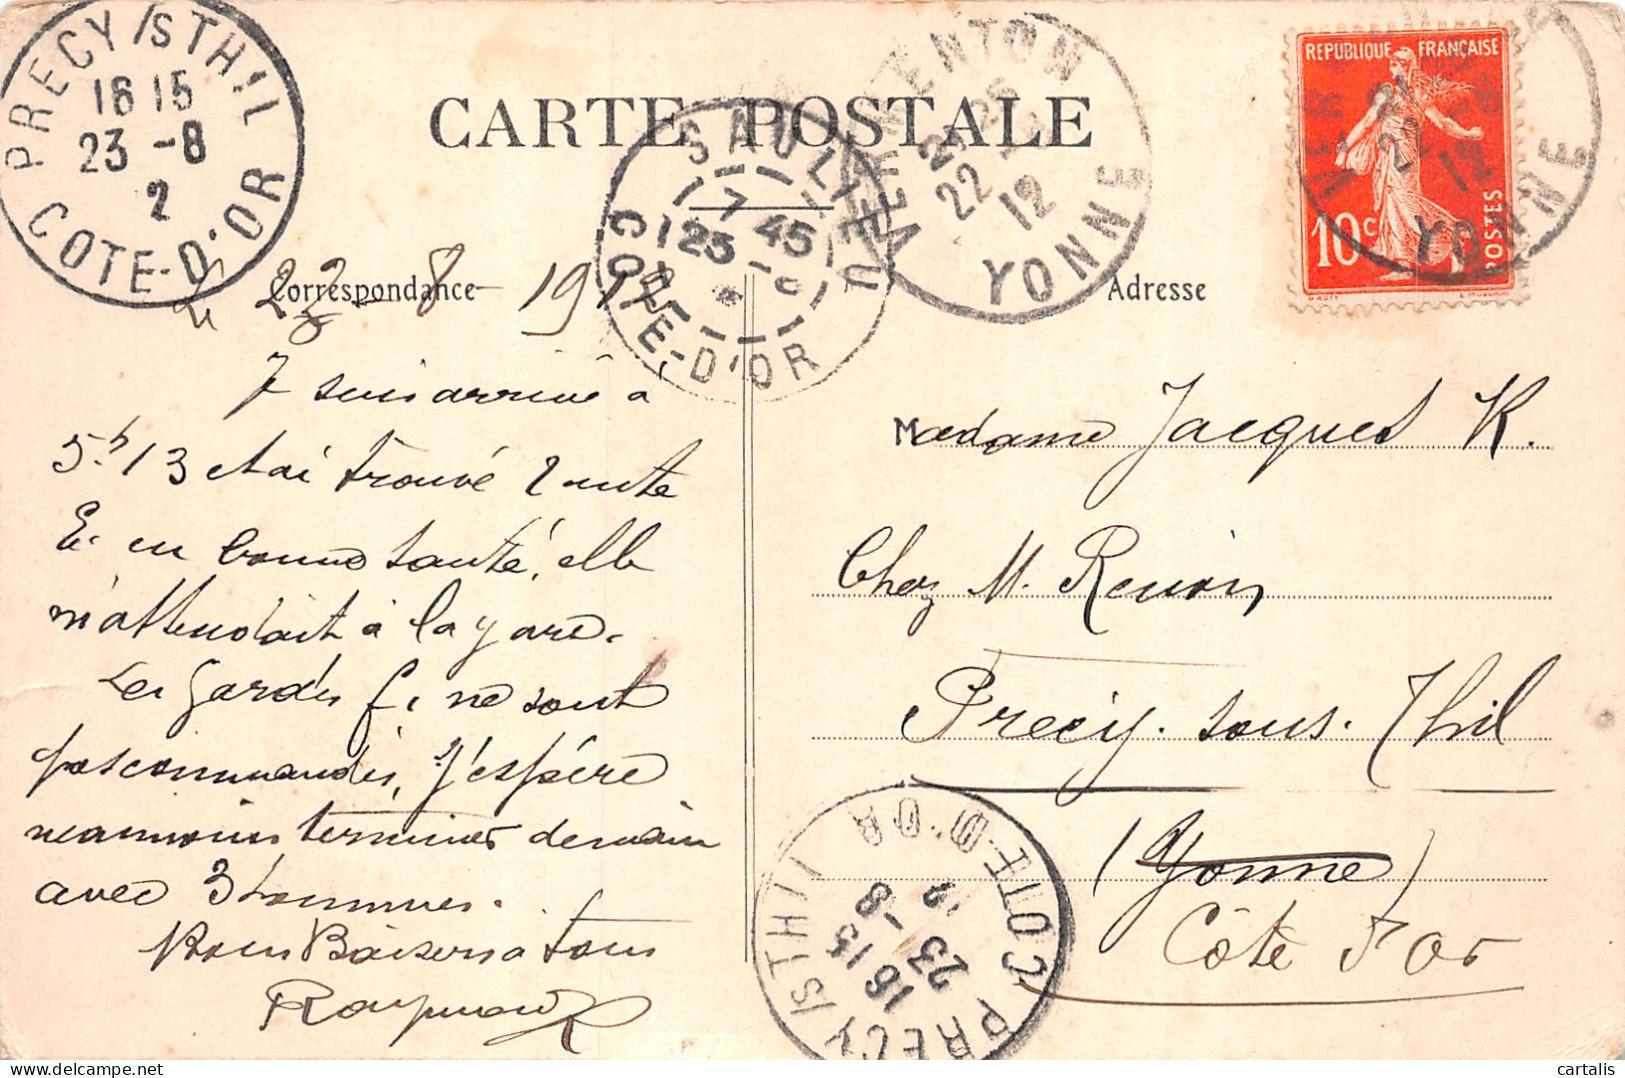 CARTE POSTALE
PRECY /S THIL
16 15
23 -8
2
COTE-D'OR
SAULIEU
7 45
23 -8
COTE-D'OR
VERMENTON
22
12
YONNE
REPUBLIQUE FRANÇAISE
10c
POSTES
YONNE
Correspondance
Adresse
Le 22-8-1912
Je suis arrivé à
5h13 et ai trouvé Tante
E. en bonne santé, elle
m'attendait à la gare.
Les gardes f. ne sont
pas commandés, J'espère
neanmoins terminer demain
avec 3 hommes.
Bons Baisers a tous
Raymond
Madame Jacques K.
Chez M. Renon
Precy. sous. Thil
(Yonne)
Côte d'Or
PRECY /S THIL
16 15
23 -8
12
COTE-D'OR
cartalis